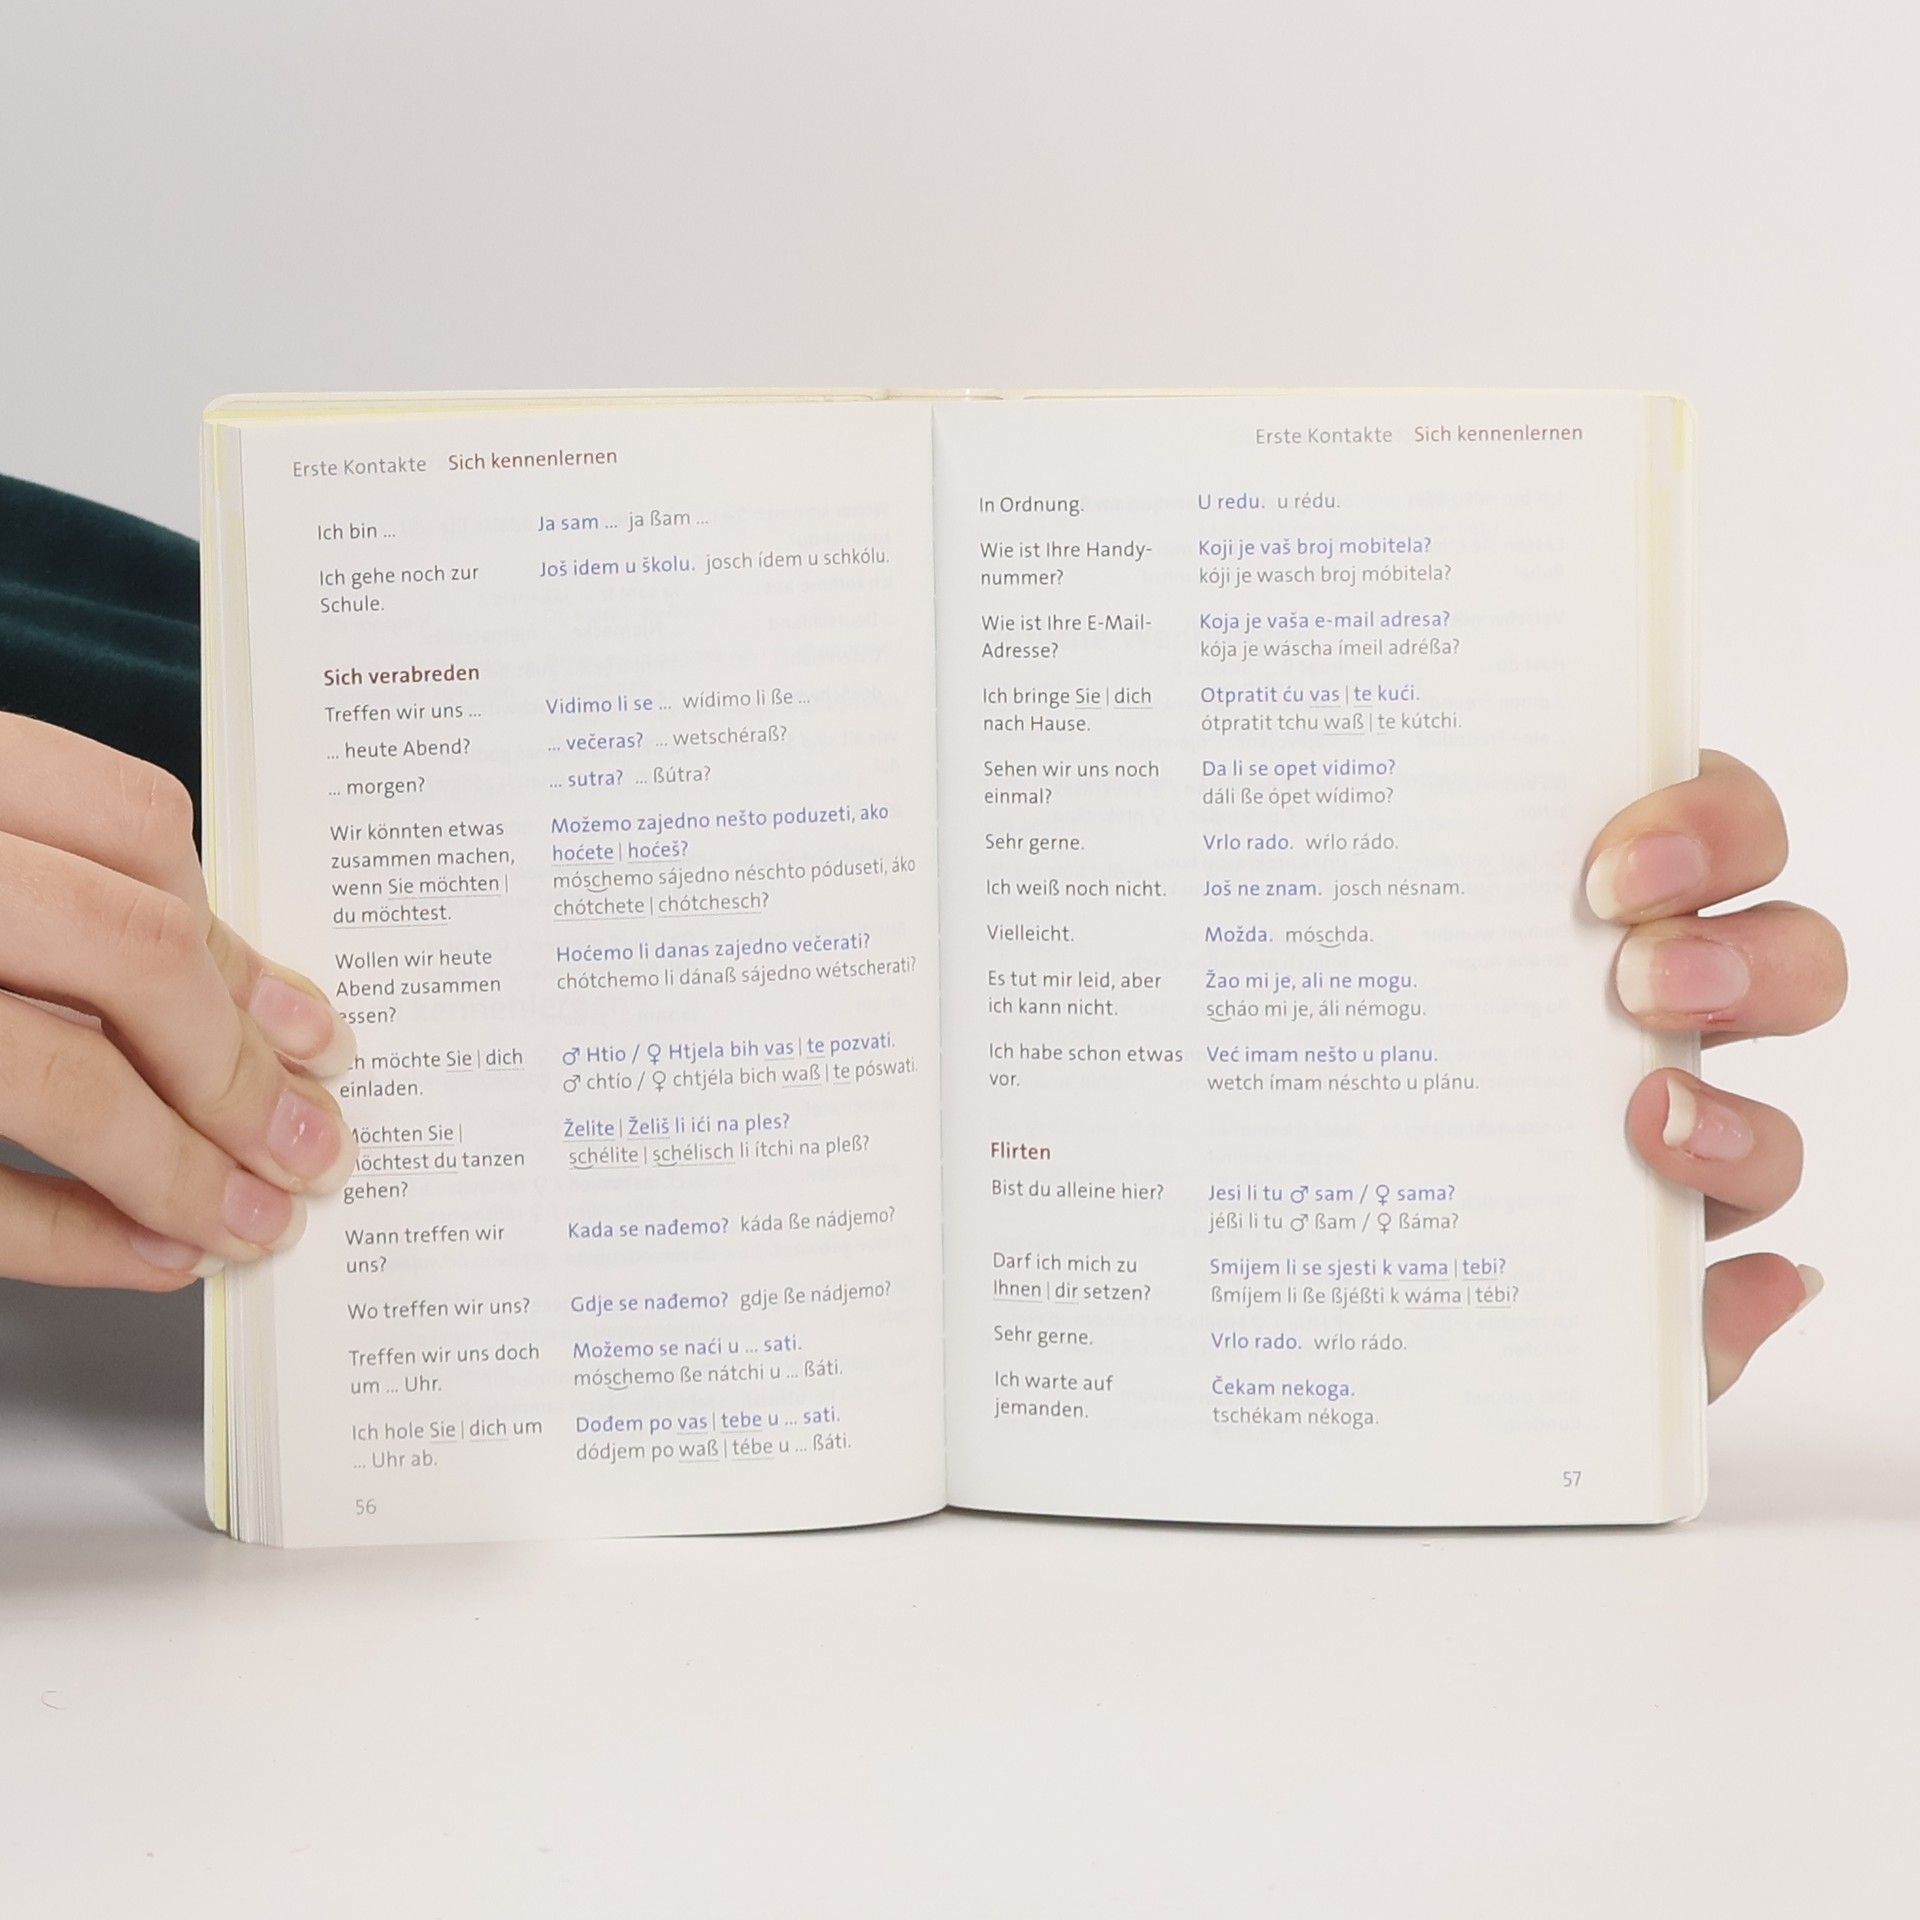 Erste Kontakte Sich kennenlernen
Ich bin ... Ja sam ... ja ßam ...
Ich gehe noch zur Još idem u školu. josch ídem u schkólu.
Schule.
Sich verabreden
Treffen wir uns ... Vidimo li se ... wídimo li ße ...
... heute Abend? ... večeras? ... wetschéraß?
... morgen? ... sutra? ... ßútra?
Wir könnten etwas Možemo zajedno nešto poduzeti, ako
zusammen machen, hoćete | hoćeš?
wenn Sie möchten | móschemo sájedno néschto póduseti, áko
du möchtest. chótchete | chótchesch?
Wollen wir heute Hoćemo li danas zajedno večerati?
Abend zusammen chótchemo li dánaß sájedno wétscherati?
essen?
möchte Sie | dich ♂ Htio / ♀ Htjela bih vas | te pozvati.
einladen. ♂ chtío / ♀ chtjéla bich waß | te póswati.
Möchten Sie | Želite | Želiš li ići na ples?
möchtest du tanzen schélite | schélisch li ítchi na pleß?
gehen?
Wann treffen wir Kada se nađemo? káda ße nádjemo?
uns?
Wo treffen wir uns? Gdje se nađemo? gdje ße nádjemo?
Treffen wir uns doch Možemo se naći u ... sati.
um ... Uhr. móschemo ße nátchi u ... ßáti.
Ich hole Sie | dich um Dođem po vas | tebe u ... sati.
... Uhr ab. dódjem po waß | tébe u ... ßáti.
56
Erste Kontakte Sich kennenlernen
In Ordnung. U redu. u rédu.
Wie ist Ihre Handy- Koji je vaš broj mobitela?
nummer? kóji je wasch broj móbitela?
Wie ist Ihre E-Mail- Koja je vaša e-mail adresa?
Adresse? kója je wáscha ímeil adréßa?
Ich bringe Sie | dich Otpratit ću vas | te kući.
nach Hause. ótpratit tchu waß | te kútchi.
Sehen wir uns noch Da li se opet vidimo?
einmal? dáli ße ópet wídimo?
Sehr gerne. Vrlo rado. wŕlo rádo.
Ich weiß noch nicht. Još ne znam. josch nésnam.
Vielleicht. Možda. móschda.
Es tut mir leid, aber Žao mi je, ali ne mogu.
ich kann nicht. scháo mi je, áli némogu.
Ich habe schon etwas Već imam nešto u planu.
vor. wetch ímam néschto u plánu.
Flirten
Bist du alleine hier? Jesi li tu ♂ sam / ♀ sama?
jéßi li tu ♂ ßam / ♀ ßáma?
Darf ich mich zu Smijem li se sjesti k vama | tebi?
Ihnen | dir setzen? ßmíjem li ße ßjéßti k wáma | tébi?
Sehr gerne. Vrlo rado. wŕlo rádo.
Ich warte auf Čekam nekoga.
jemanden. tschékam nékoga.
57